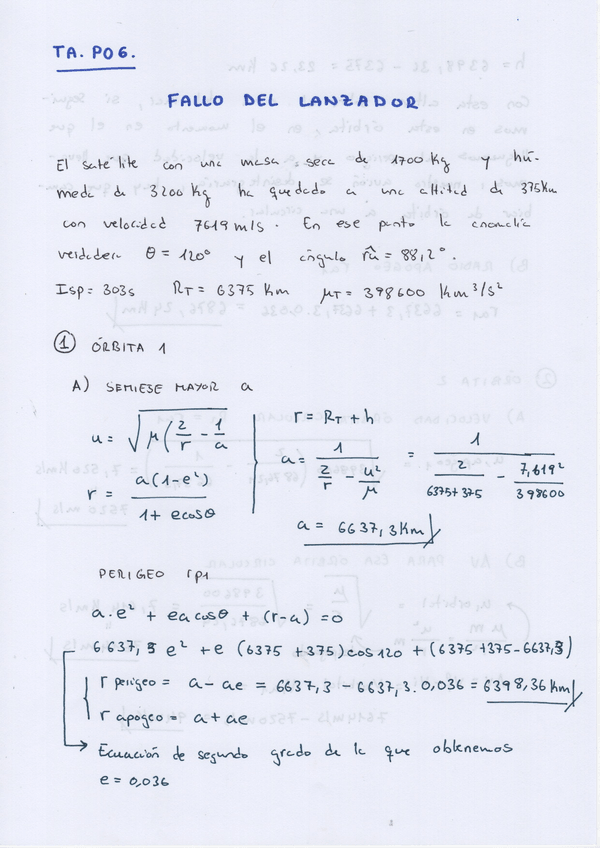 TA. P06.
FALLO DEL LANZADOR
El satélite con una masa seca de 1700 Kg y hú-
meda de 3200 Kg ha quedado a una altitud de 375Km
con velocidad 7619 m/s. En ese punto la anomalía
verdadera θ = 120° y el ángulo r̂u = 88,2°.
Isp = 303s RT = 6375 Km μT = 398600 Km³/s²
① ÓRBITA 1
A) SEMIESE MAYOR a
u = √(μ(2/r - 1/a)) r = RT + h
r = a(1-e²)/(1 + e cosθ) a = 1/(2/r - u²/μ) = 1/(2/(6375+375) - 7,619²/398600)
a = 6637,3Km
PERIGEO rp1
a·e² + ea cosθ + (r-a) = 0
6637,3 e² + e (6375 +375) cos120 + (6375 +375-6637,3)
r perigeo = a - ae = 6637,3 - 6637,3 . 0,036 = 6398,36 Km
r apogeo = a + ae
Ecuación de segundo grado de la que obtenemos
e = 0,036